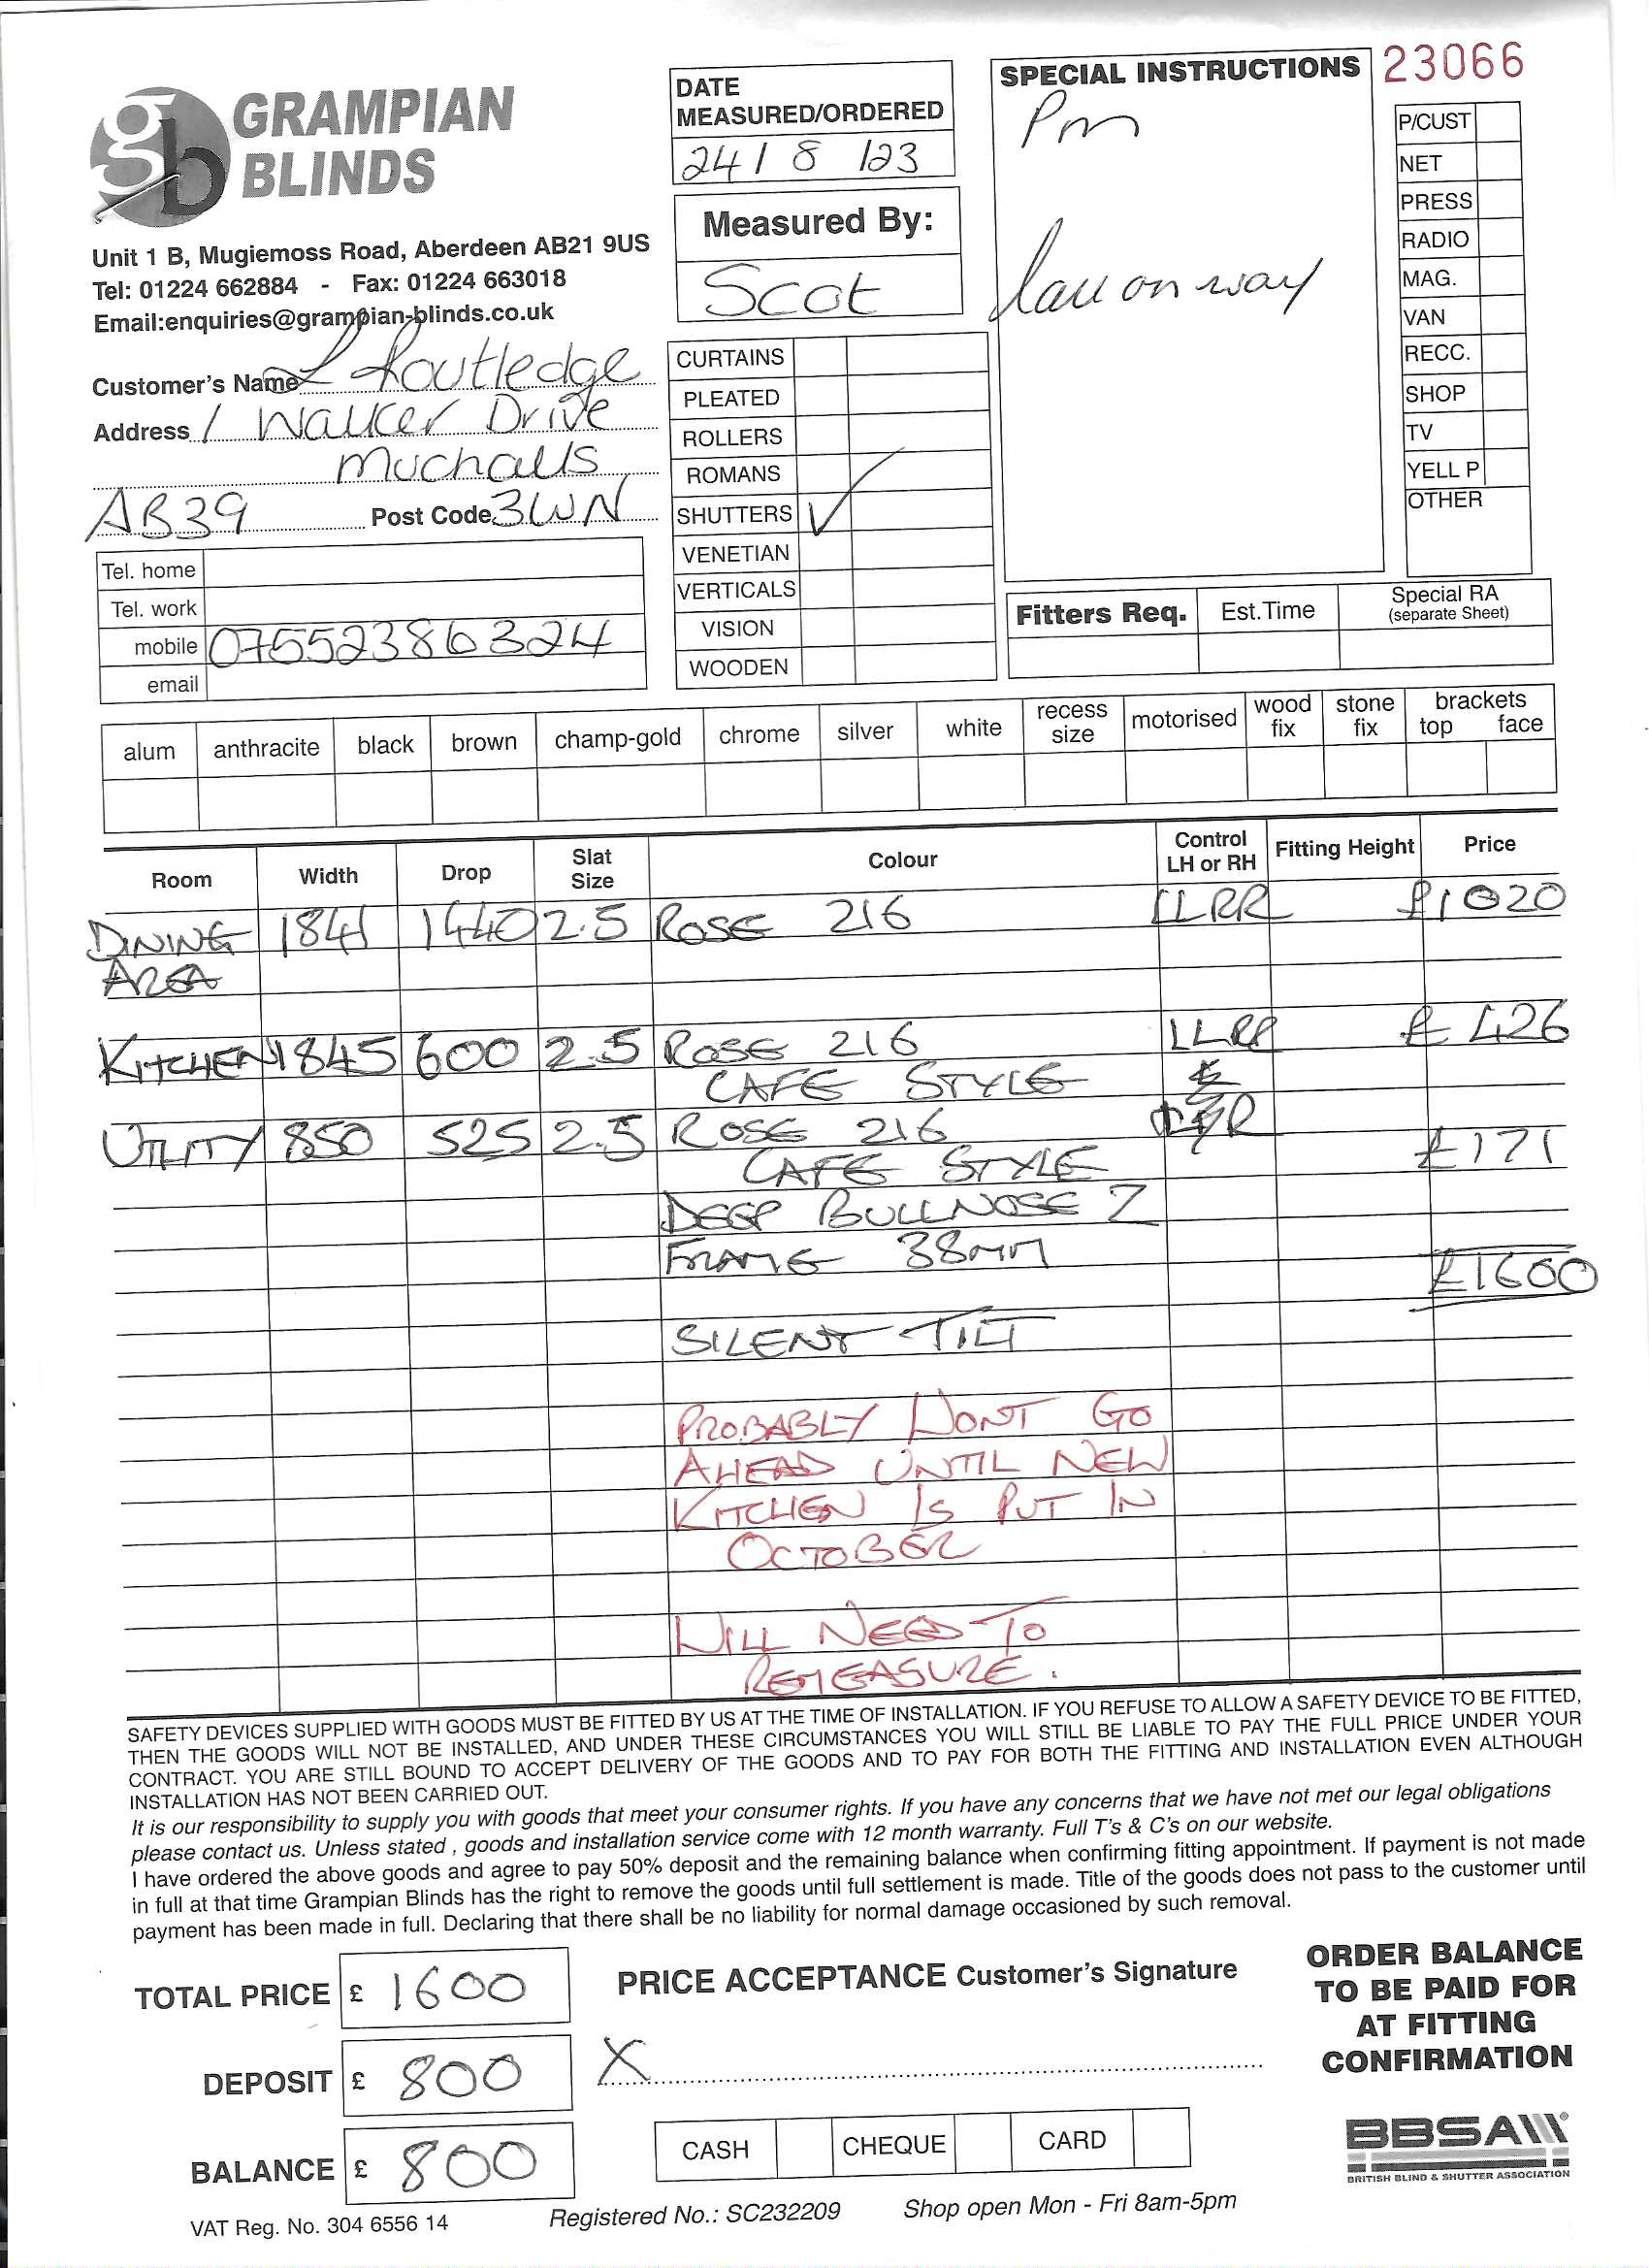 GRAMPIAN
BLINDS
Unit 1 B, Mugiemoss Road, Aberdeen AB21 9US
Tel: 01224 662884 - Fax: 01224 663018
Email:enquiries@grampian-blinds.co.uk
Customer's Name L Routledge
Address 1 Walker Drive
Muchalls
AB39 Post Code 3WN
Tel. home
Tel. work
mobile 07552386324
email
DATE
MEASURED/ORDERED
24/8/23
Measured By:
Scot
CURTAINS
PLEATED
ROLLERS
ROMANS
SHUTTERS ✓
VENETIAN
VERTICALS
VISION
WOODEN
SPECIAL INSTRUCTIONS
Pm
on way
23066
P/CUST
NET
PRESS
RADIO
MAG.
VAN
RECC.
SHOP
TV
YELL P
OTHER
Fitters Req. Est.Time Special RA
(separate Sheet)
alum anthracite black brown champ-gold chrome silver white recess size motorised wood fix stone fix brackets top face
Room Width Drop Slat Size Colour Control LH or RH Fitting Height Price
DINING 1841 1440 2.5 ROSE 216 LLRR £1020
AREA
KITCHEN 1845 600 2.5 ROSE 216 LLRR £426
CAFE STYLE
UTILITY 850 525 2.5 ROSE 216
CAFE STYLE £171
DEEP BULLNOSE Z
FRAME 38MM
£1600
SILENT TILT
PROBABLY WONT GO
AHEAD UNTIL NEW
KITCHEN IS PUT IN
OCTOBER
WILL NEED TO
REMEASURE.
SAFETY DEVICES SUPPLIED WITH GOODS MUST BE FITTED BY US AT THE TIME OF INSTALLATION. IF YOU REFUSE TO ALLOW A SAFETY DEVICE TO BE FITTED,
THEN THE GOODS WILL NOT BE INSTALLED, AND UNDER THESE CIRCUMSTANCES YOU WILL STILL BE LIABLE TO PAY THE FULL PRICE UNDER YOUR
CONTRACT. YOU ARE STILL BOUND TO ACCEPT DELIVERY OF THE GOODS AND TO PAY FOR BOTH THE FITTING AND INSTALLATION EVEN ALTHOUGH
INSTALLATION HAS NOT BEEN CARRIED OUT.
It is our responsibility to supply you with goods that meet your consumer rights. If you have any concerns that we have not met our legal obligations
please contact us. Unless stated , goods and installation service come with 12 month warranty. Full T's & C's on our website.
I have ordered the above goods and agree to pay 50% deposit and the remaining balance when confirming fitting appointment. If payment is not made
in full at that time Grampian Blinds has the right to remove the goods until full settlement is made. Title of the goods does not pass to the customer until
payment has been made in full. Declaring that there shall be no liability for normal damage occasioned by such removal.
TOTAL PRICE £ 1600
DEPOSIT £ 800
BALANCE £ 800
PRICE ACCEPTANCE Customer's Signature
X
CASH CHEQUE CARD
ORDER BALANCE
TO BE PAID FOR
AT FITTING
CONFIRMATION
BBSA
BRITISH BLIND & SHUTTER ASSOCIATION
VAT Reg. No. 304 6556 14 Registered No.: SC232209 Shop open Mon - Fri 8am-5pm